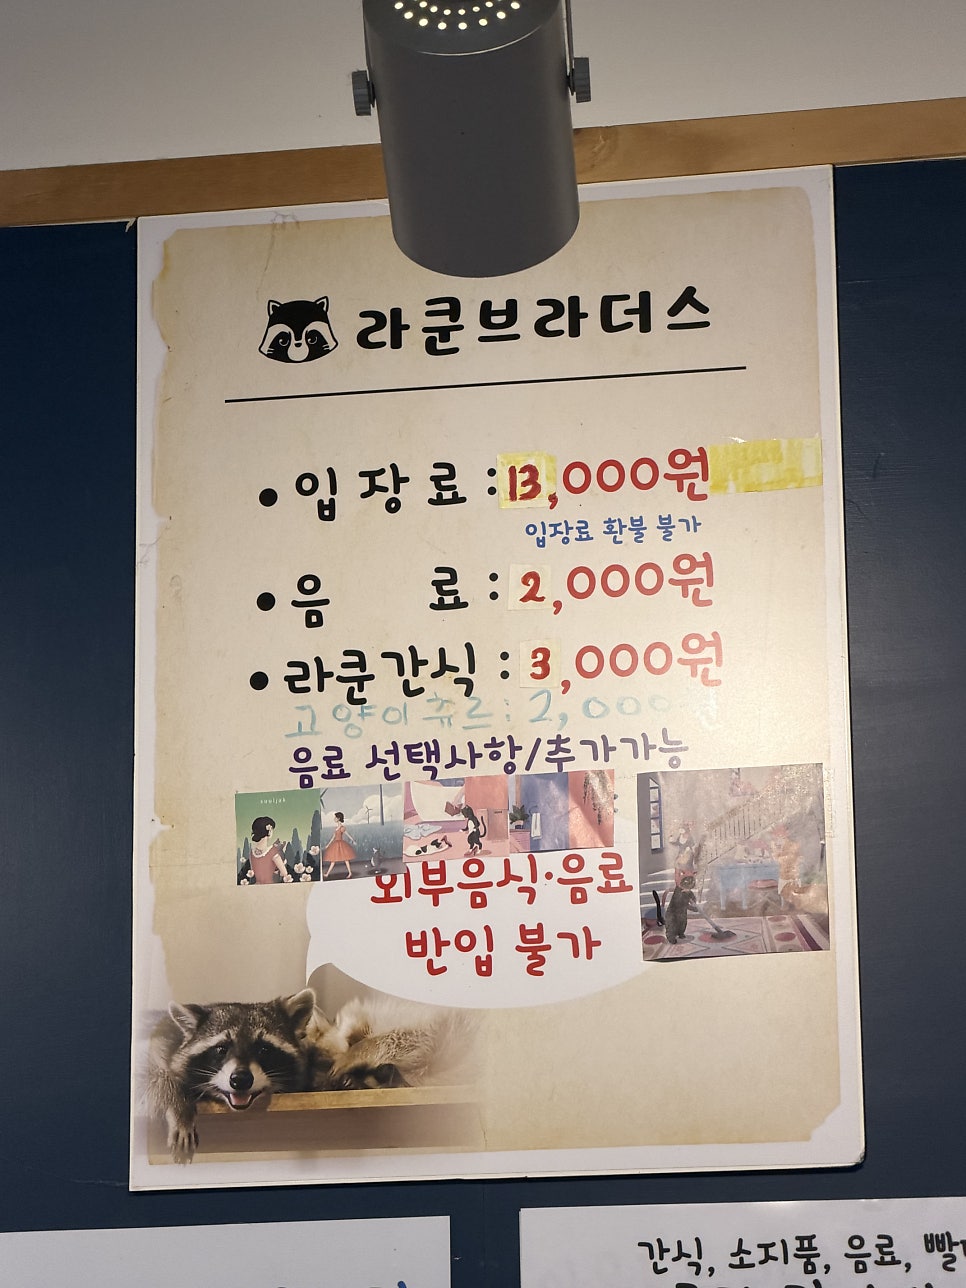 라쿤브라더스
• 입장료 : 13,000원
입장료 환불 불가
• 음 료 : 2,000원
• 라쿤간식 : 3,000원
고양이츄르 : 2,000
음료 선택사항/추가가능
외부음식·음료
반입 불가
간식, 소지품, 음료,